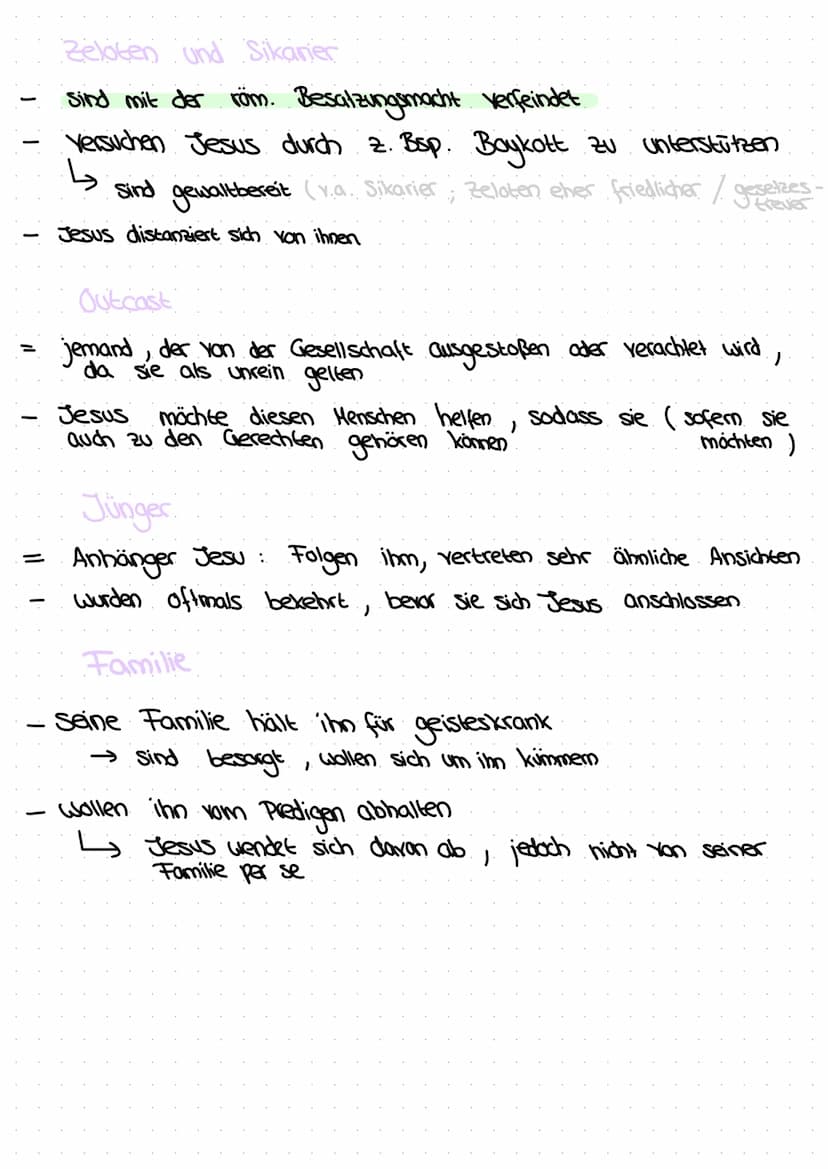 Zeloten und Sikarier
- sind mit der röm. Besatzungsmacht verfeindet
- versuchen Jesus durch z. Bsp. Boykott zu unterstützen
↳ sind gewaltbereit (v.a. Sikarier ; Zeloten eher friedlicher / gesetzes-
treuer
- Jesus distanziert sich von ihnen
Outcast
= jemand, der von der Gesellschaft ausgestoßen oder verachtet wird,
da sie als unrein gelten
- Jesus möchte diesen Menschen helfen, sodass sie (sofern sie
auch zu den Gerechten gehören können möchten)
Jünger
= Anhänger Jesu : Folgen ihm, vertreten sehr ähnliche Ansichten
- wurden oftmals bekehrt, bevor sie sich Jesus anschlossen
Familie
- seine Familie hält ihn für geisteskrank
→ sind besorgt, wollen sich um ihn kümmern
- wollen ihn vom Predigen abhalten
↳ Jesus wendet sich davon ab, jedoch nicht von seiner
Familie per se